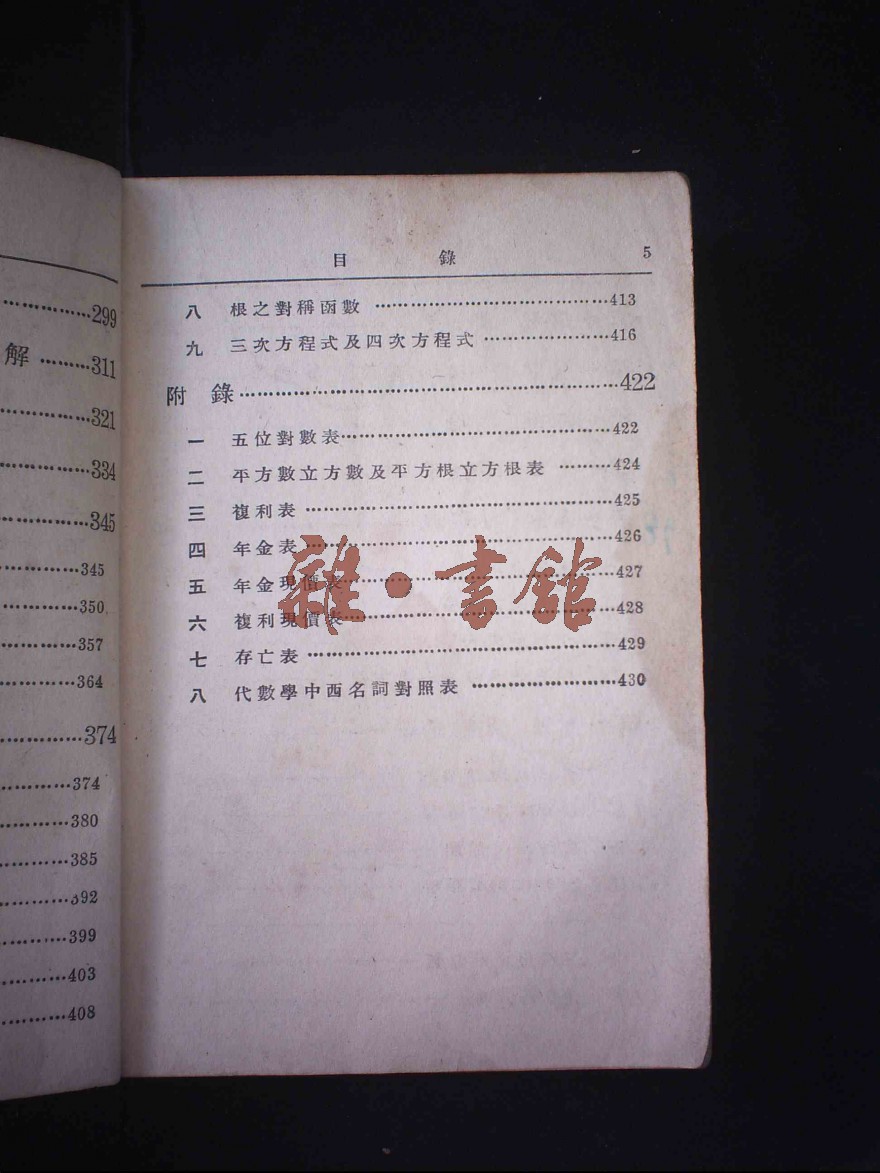 ……299
解……311
……321
……334
……345
……345
……350
……357
……364
……374
……374
……380
……385
……392
……399
……403
……408
目 錄 5
八 根之對稱函數……413
九 三次方程式及四次方程式……416
附 錄……422
一 五位對數表……422
二 平方數立方數及平方根立方根表……424
三 複利表……425
四 年金表……426
五 年金現價表……427
六 複利現價表……428
七 存亡表……429
八 代數學中西名詞對照表……430
雜·書館